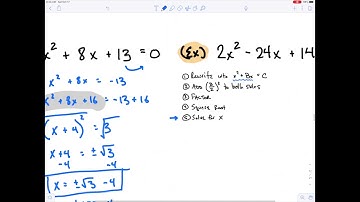 x² + 8x + 13 = 0
x² + 8x = -13
x² + 8x + 16 = -13 + 16
√(x + 4)² = √3
x + 4 = ±√3
-4 -4
x = ±√3 - 4
(Ex) 2x² - 24x + 14
① Rewrite into x² + Bx = C
② Add (B/2)² to both sides
③ Factor
④ Square Root
→ ⑤ Solve for x